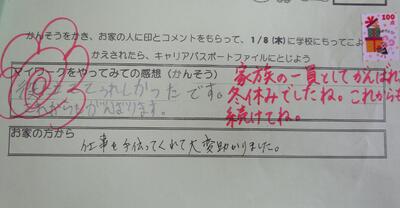 かんそうをかき、お家の人に印とコメントをもらって、1/8(木)に学校にもってこよ
かえされたら、キャリアパスポートファイルにとじよう
マイワークをやってみての感想(かんそう)
てうれしかったです。
これからもがんばります。
家族の一員としてがんばれた
冬休みでしたね。これからも
続けてね。
お家の方から
仕事も手伝ってくれて大変助かりました。
100